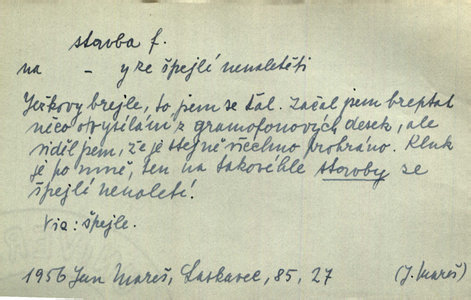 stavba f.
na – y ze špejlí nenaletěti
Ježkovy brejle, to jsem se řal. Začal jsem breptat
něco o vysílání z gramofonových desek, ale
viděl jsem, že je stejně všechno prohráno. Kluk
je po mně, ten na takovéhle stavby ze
špejlí nenaletí.
Viz: špejle.
1956 Jan Mareš, Laskavec, 85, 27 (J. Mareš)